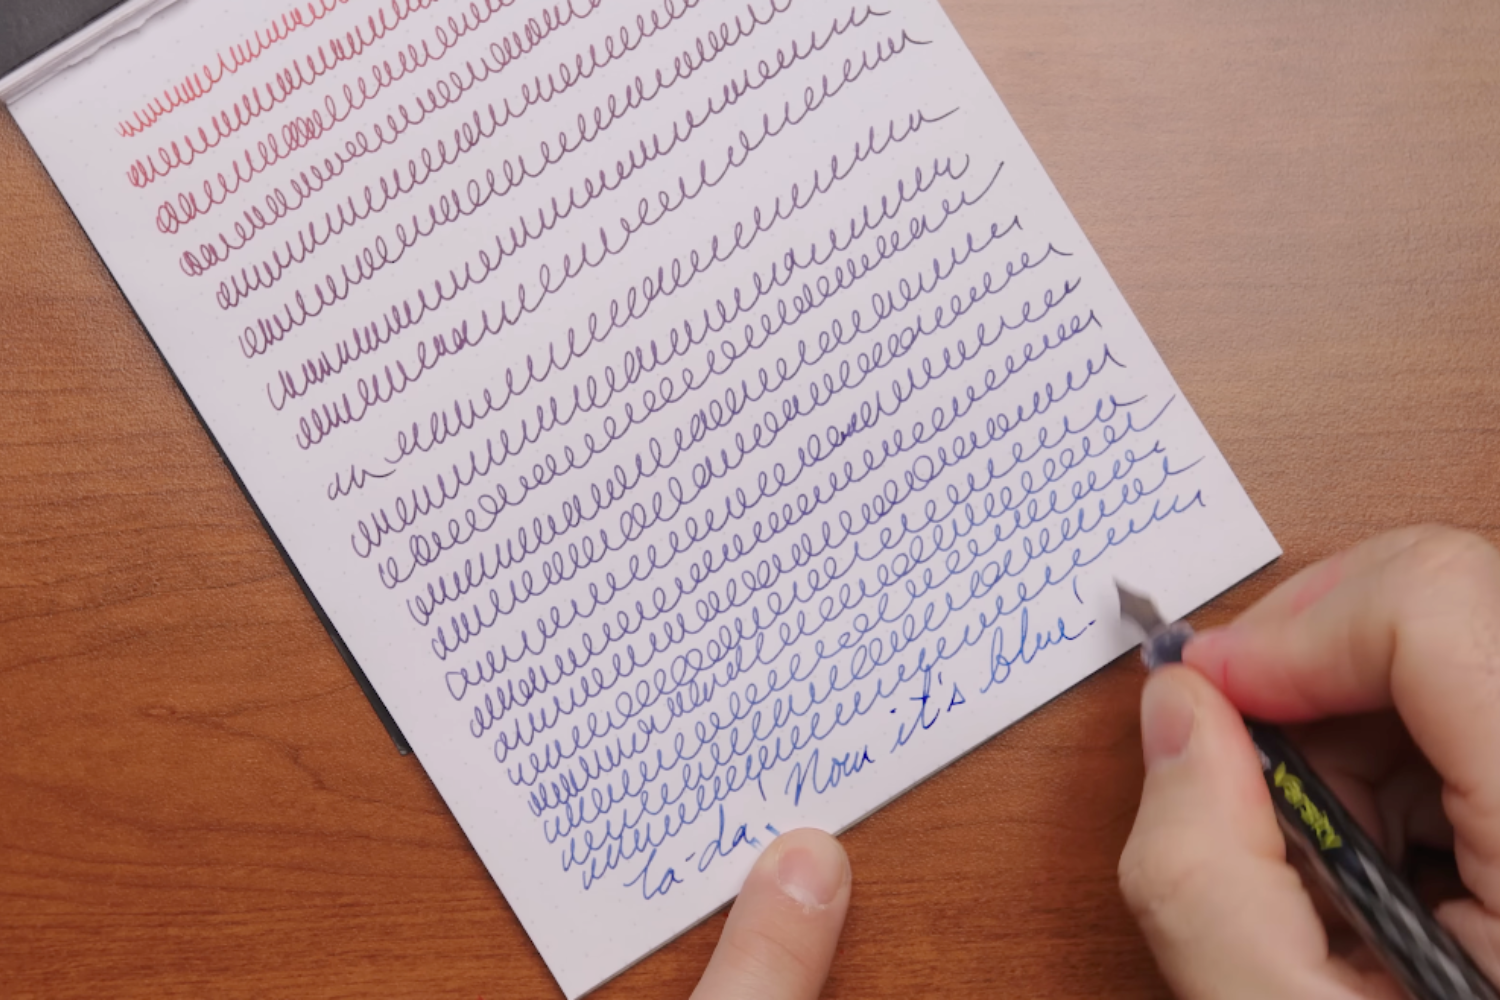 Ta-da! Now it's blue!
Varsity